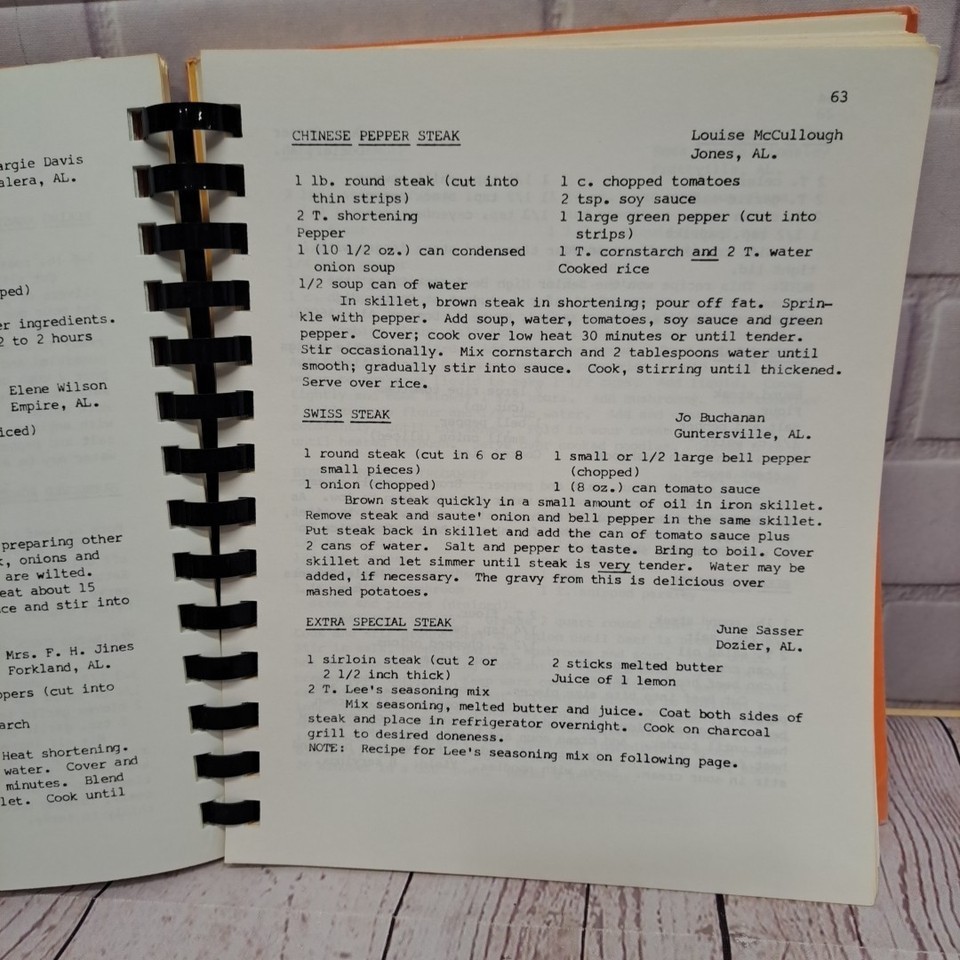 argie Davis
alera, AL.
ped)
er ingredients.
2 to 2 hours
Elene Wilson
Empire, AL.
iced)
preparing other
k, onions and
are wilted.
eat about 15
ce and stir into
Mrs. F. H. Jines
Forkland, AL.
ppers (cut into
arch
Heat shortening.
water. Cover and
minutes. Blend
let. Cook until
63
CHINESE PEPPER STEAK
Louise McCullough
Jones, AL.
1 lb. round steak (cut into
thin strips)
2 T. shortening
Pepper
1 (10 1/2 oz.) can condensed
onion soup
1/2 soup can of water
1 c. chopped tomatoes
2 tsp. soy sauce
1 large green pepper (cut into
strips)
1 T. cornstarch and 2 T. water
Cooked rice
In skillet, brown steak in shortening; pour off fat. Sprin-
kle with pepper. Add soup, water, tomatoes, soy sauce and green
pepper. Cover; cook over low heat 30 minutes or until tender.
Stir occasionally. Mix cornstarch and 2 tablespoons water until
smooth; gradually stir into sauce. Cook, stirring until thickened.
Serve over rice.
SWISS STEAK
Jo Buchanan
Guntersville, AL.
1 round steak (cut in 6 or 8
small pieces)
1 onion (chopped)
1 small or 1/2 large bell pepper
(chopped)
1 (8 oz.) can tomato sauce
Brown steak quickly in a small amount of oil in iron skillet.
Remove steak and saute' onion and bell pepper in the same skillet.
Put steak back in skillet and add the can of tomato sauce plus
2 cans of water. Salt and pepper to taste. Bring to boil. Cover
skillet and let simmer until steak is very tender. Water may be
added, if necessary. The gravy from this is delicious over
mashed potatoes.
EXTRA SPECIAL STEAK
June Sasser
Dozier, AL.
1 sirloin steak (cut 2 or
2 1/2 inch thick)
2 T. Lee's seasoning mix
2 sticks melted butter
Juice of 1 lemon
Mix seasoning, melted butter and juice. Coat both sides of
steak and place in refrigerator overnight. Cook on charcoal
grill to desired doneness.
NOTE: Recipe for Lee's seasoning mix on following page.